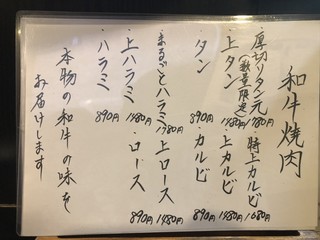 和牛焼肉
・厚切りタン元 1780円
(数量限定)
・特上カルビ 1680円
・上タン 1480円
・上カルビ 1480円
・タン 890円
・カルビ 890円
・まるごとハラミ 1780円
・上ロース 1480円
・上ハラミ 1480円
・ロース 890円
・ハラミ 890円
本物の和牛の味を
お届けします